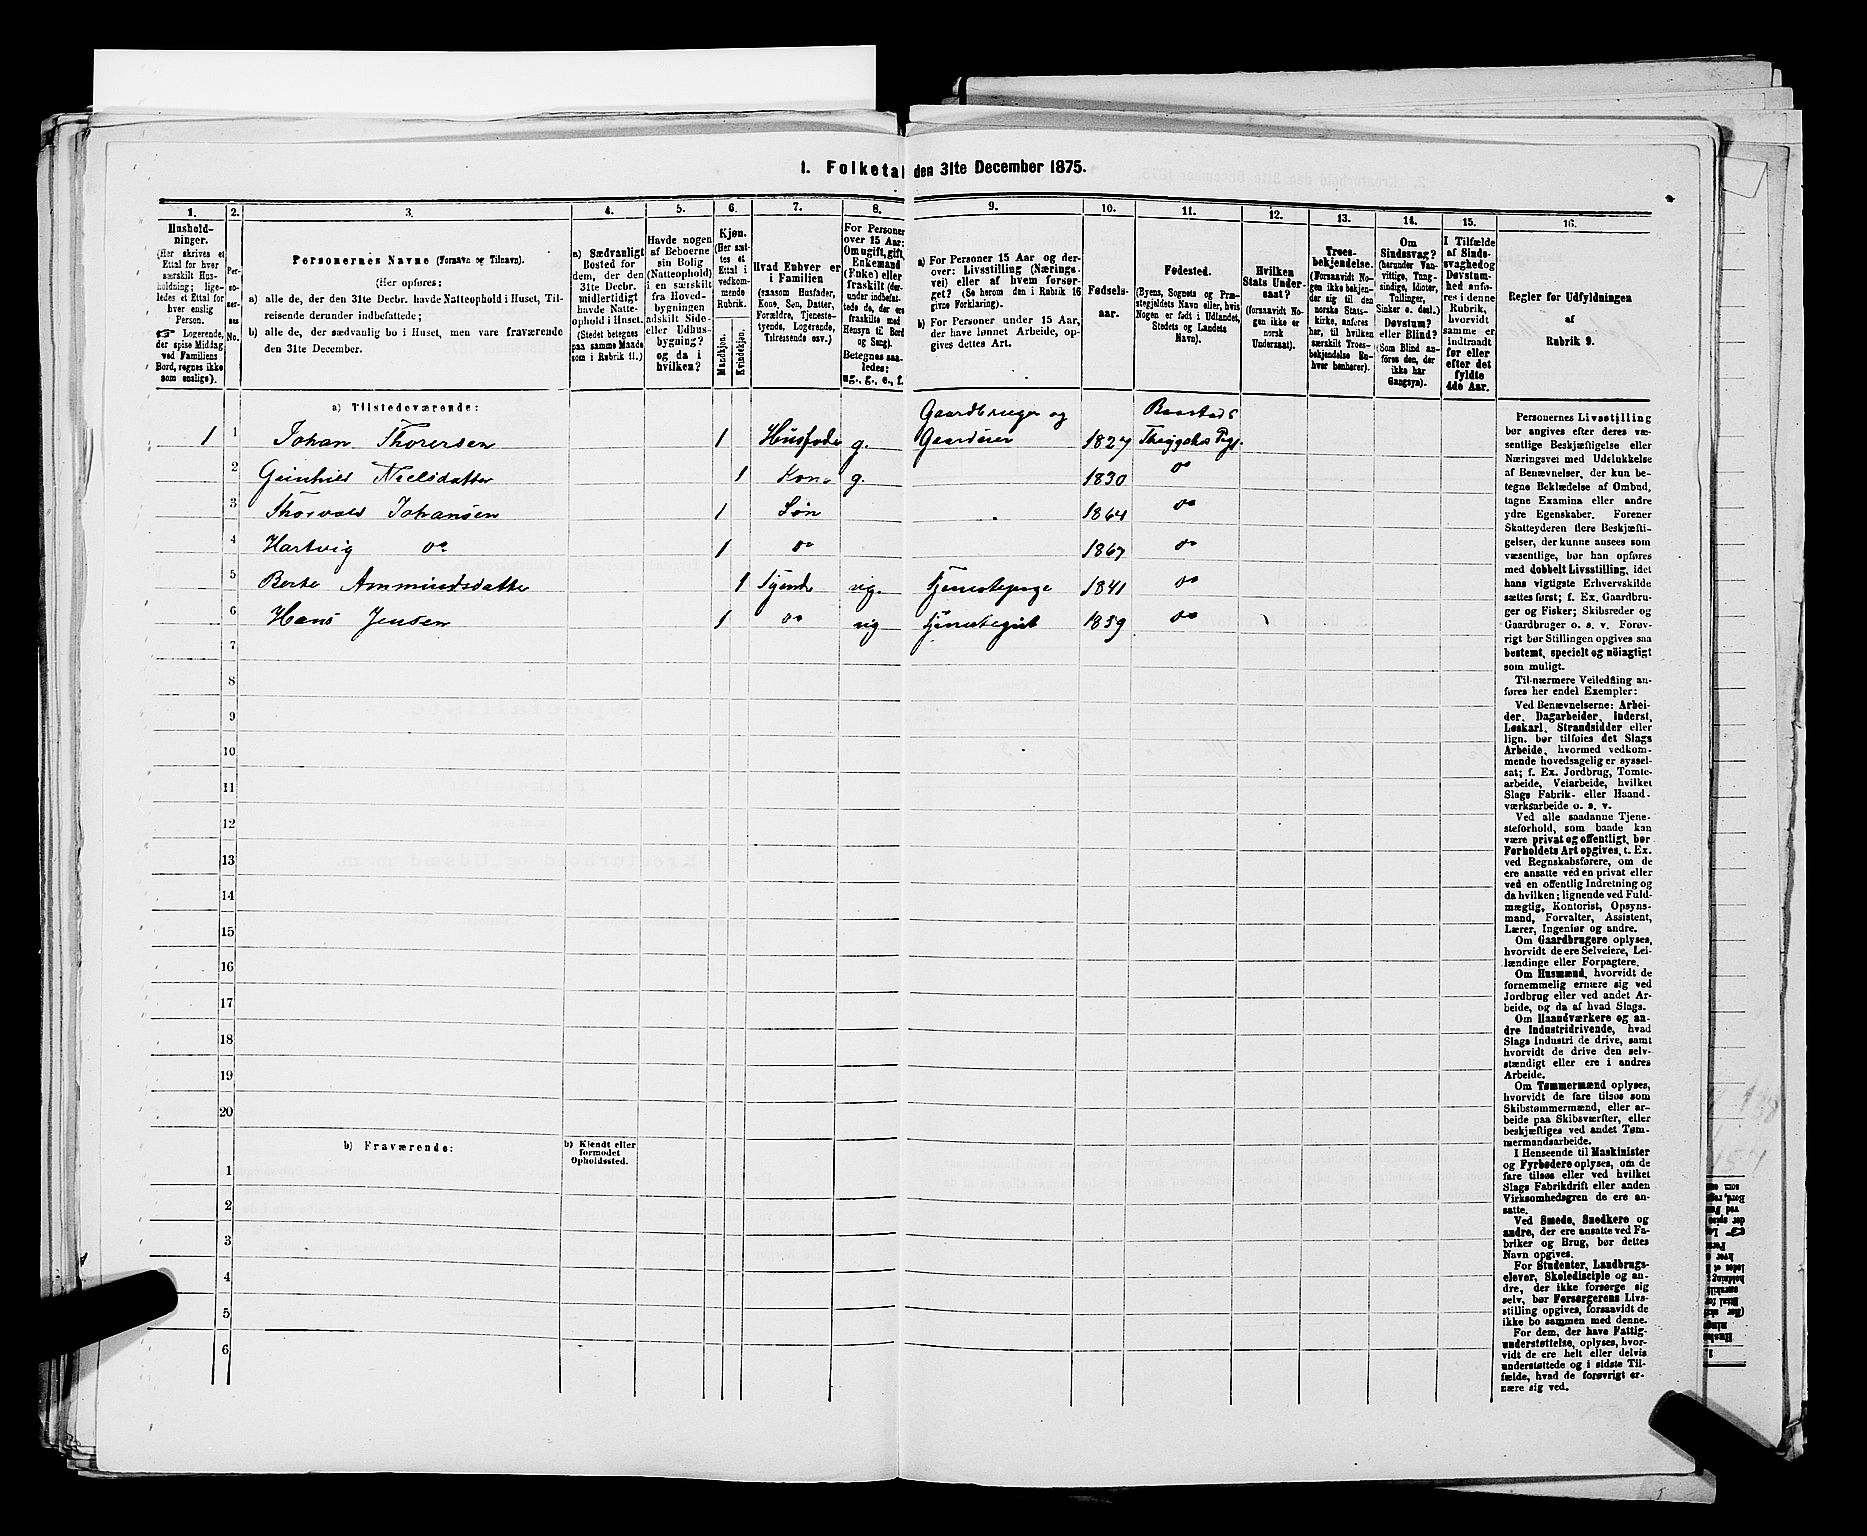 1. Folketal den 31te December 1875.
1. 2. 3. 4. 5. 6. 7. 8. 9. 10. 11. 12. 13. 14. 15. 16.
Hushold-
ninger.
(Her skrives et
Ettal for hver
særskilt Hus-
holdning; lige-
ledes et Ettal for
hver enslig
Person.
☞ Logerende,
der spise Middag
ved Familiens
Bord, regnes ikke
som enslige).
Per-
so-
ner-
nes
No.
Personernes Navne (Fornavn og Tilnavn).
(Her opføres:
a) alle de, der den 31te Decbr. havde Natteophold i Huset, Til-
reisende derunder indbefattede;
b) alle de, der sædvanlig bo i Huset, men vare fraværende
den 31te December.
a) Sædvanligt
Bosted for
dem, der den
31te Decbr.
midlertidigt
havde Natte-
ophold i Huset.
(Stedet betegnes
paa samme Maade
som i Rubrik 11.)
Havde nogen
af Beboerne
sin Bolig
(Natteophold)
i en særskilt
fra Hoved-
bygningen
adskilt Side-
eller Udhus-
bygning?
og da i
hvilken?
Kjøn.
(Her sæt-
tes et
Ettal i
vedkom-
mende
Rubrik.
Mandkjøn.
Kvindekjøn.
Hvad Enhver er
i Familien
(saasom Husfader,
Kone, Søn, Datter,
Forældre, Tjeneste-
tyende, Logerende,
Tilreisende osv.)
For Personer
over 15 Aar:
Om ugift, gift,
Enkemand
(Enke) eller
fraskilt (der-
under indbefat-
tede de, der ere
fraskilte med
Hensyn til Bord
og Seng).
Betegnes saa-
ledes:
ug., g., e., f.
a) For Personer 15 Aar og der-
over: Livsstilling (Nærings-
vei) eller af hvem forsør-
get? (Se herom den i Rubrik 16
givne Forklaring).
b) For Personer under 15 Aar,
der have lønnet Arbeide, op-
gives dettes Art.
Fødsels-
aar.
Fødested.
(Byens, Sognets og Præ-
stegjeldets Navn eller, hvis
Nogen er født i Udlandet,
Stedets og Landets
Navn).
Hvilken
Stats Under-
saat?
(forsaavidt No-
gen ikke er
norsk
Undersaat).
Troes-
bekjendelse.
(Forsaavidt No-
gen ikke bekjen-
der sig til den
norske Stats-
kirke, anføres
her, til hvilken
særskilt Troes-
bekjendelse En-
hver henhører).
Om
Sindssvag?
(herunder Van-
vittige, Tung-
sindige, Idioter,
Tullinger,
Sinker o. desl.)
Døvstum?
eller Blind?
(Som Blind an-
føres den, der
ikke har
Gangsyn).
I Tilfælde
af Sinds-
svaghed og
Døvstum-
hed anfø-
res i denne
Rubrik,
hvorvidt
samme er
indtraadt
før eller
efter det
fyldte
4de Aar.
Regler for Udfyldningen
af
Rubrik 9.
a) Tilstedeværende:
Gaardbruger og Baastads
1 1 Johan Thorersen 1 Husfader g. Gaardeier 1827
2 Nielsdatter 1 Kone g. 1830 do
3 Thorvald Johansen 1 Søn 1864 do
4 Hartvig do 1 do 1867 do
5 Berte Ammundsdatter 1 Tyende ug. Tjenestepige 1841 do
6 Hans Jensen 1 do ug Tjenestegut 1859 do
7
8
9
10
11
12
13
14
15
16
17
18
19
20
b) Fraværende:
b) Kjendt eller
formodet
Opholdssted.
1
2
3
4
5
6
Personernes Livsstilling
bør angives efter deres væ-
sentlige Beskjæftigelse eller
Næringsvei med Udelukkelse
af Benævnelser, der kun be-
tegne Beklædelse af Ombud,
tagne Examina eller andre
ydre Egenskaber. Forener
Skatteyderen flere Beskjæfti-
gelser, der kunne ansees som
væsentlige, bør han opføres
med dobbelt Livsstilling, idet
hans vigtigste Erhvervskilde
sættes først; f. Ex. Gaardbru-
ger og Fisker; Skibsreder og
Gaardbruger o. s. v. Forøv-
rigt bør Stillingen opgives saa
bestemt, specielt og nöiagtigt
som muligt.
Til nærmere Veiledning an-
føres her endel Exempler:
Ved Benævnelserne: Arbei-
der, Dagarbeider, Inderst,
Løskarl, Strandsidder eller
lign. bør tilføies det Slags
Arbeide, hvormed vedkom-
mende hovedsagelig er syssel-
sat; f. Ex. Jordbrug, Tomte-
arbeide, Veiarbeide, hvilket
Slags Fabrik- eller Haand-
værksarbeide o. s. v.
Ved alle saadanne Tjene-
steforhold, som baade kan
være privat og offentligt, bør
Forholdets Art opgives, t. Ex.
ved Regnskabsførere, om de
ere ansatte ved en privat eller
ved en offentlig Indretning og
da hvilken; lignende ved Fuld-
mægtig, Kontorist, Opsyns-
mand, Forvalter, Assistent,
Lærer, Ingeniør og andre.
Om Gaardbrugere oplyses,
hvorvidt de ere Selveiere, Lei-
lændinge eller Forpagtere.
Om Husmænd, hvorvidt de
fornemmelig ernære sig ved
Jordbrug eller ved andet Ar-
beide, og da af hvad Slags.
Om Haandværkere og an-
dre Industridrivende, hvad
Slags Industri de drive, samt
hvorvidt de drive den selv-
stændigt eller ere i andres
Arbeide.
Om Tømmermænd oplyses,
hvorvidt de fare tilsøs som
Skibstømmermænd, eller ar-
beide paa Skibsværfter, eller
beskjæftiges ved andet Tøm-
mermandsarbeide.
I Henseende til Maskinister
og Fyrbødere oplyses, om de
fare tilsøs eller ved hvilket
Slags Fabrikdrift eller anden
Virksomhedsgren de ere an-
satte.
Ved Smede, Snedkere og
andre, der ere ansatte ved Fa-
briker og Brug, bør dettes
Navn opgives.
For Studenter, Landbrugs-
elever, Skoledisciple og an-
dre, der ikke forsørge sig
selv, bør Forsørgerens Livs-
stilling opgives, forsaavidt de
ikke bo sammen med denne.
For dem, der have Fattig-
understøttelse, oplyses, hvor-
vidt de ere helt eller delvis
understøttede og i sidste Til-
fælde, hvad de forøvrigt er-
nære sig ved.